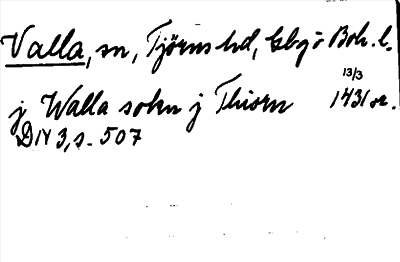 Valla, sn, Tjörns hd, Gbg o Boh. l.
j Walla sokn j Thiorn 13/3 1431 or.
DN 3, s. 507